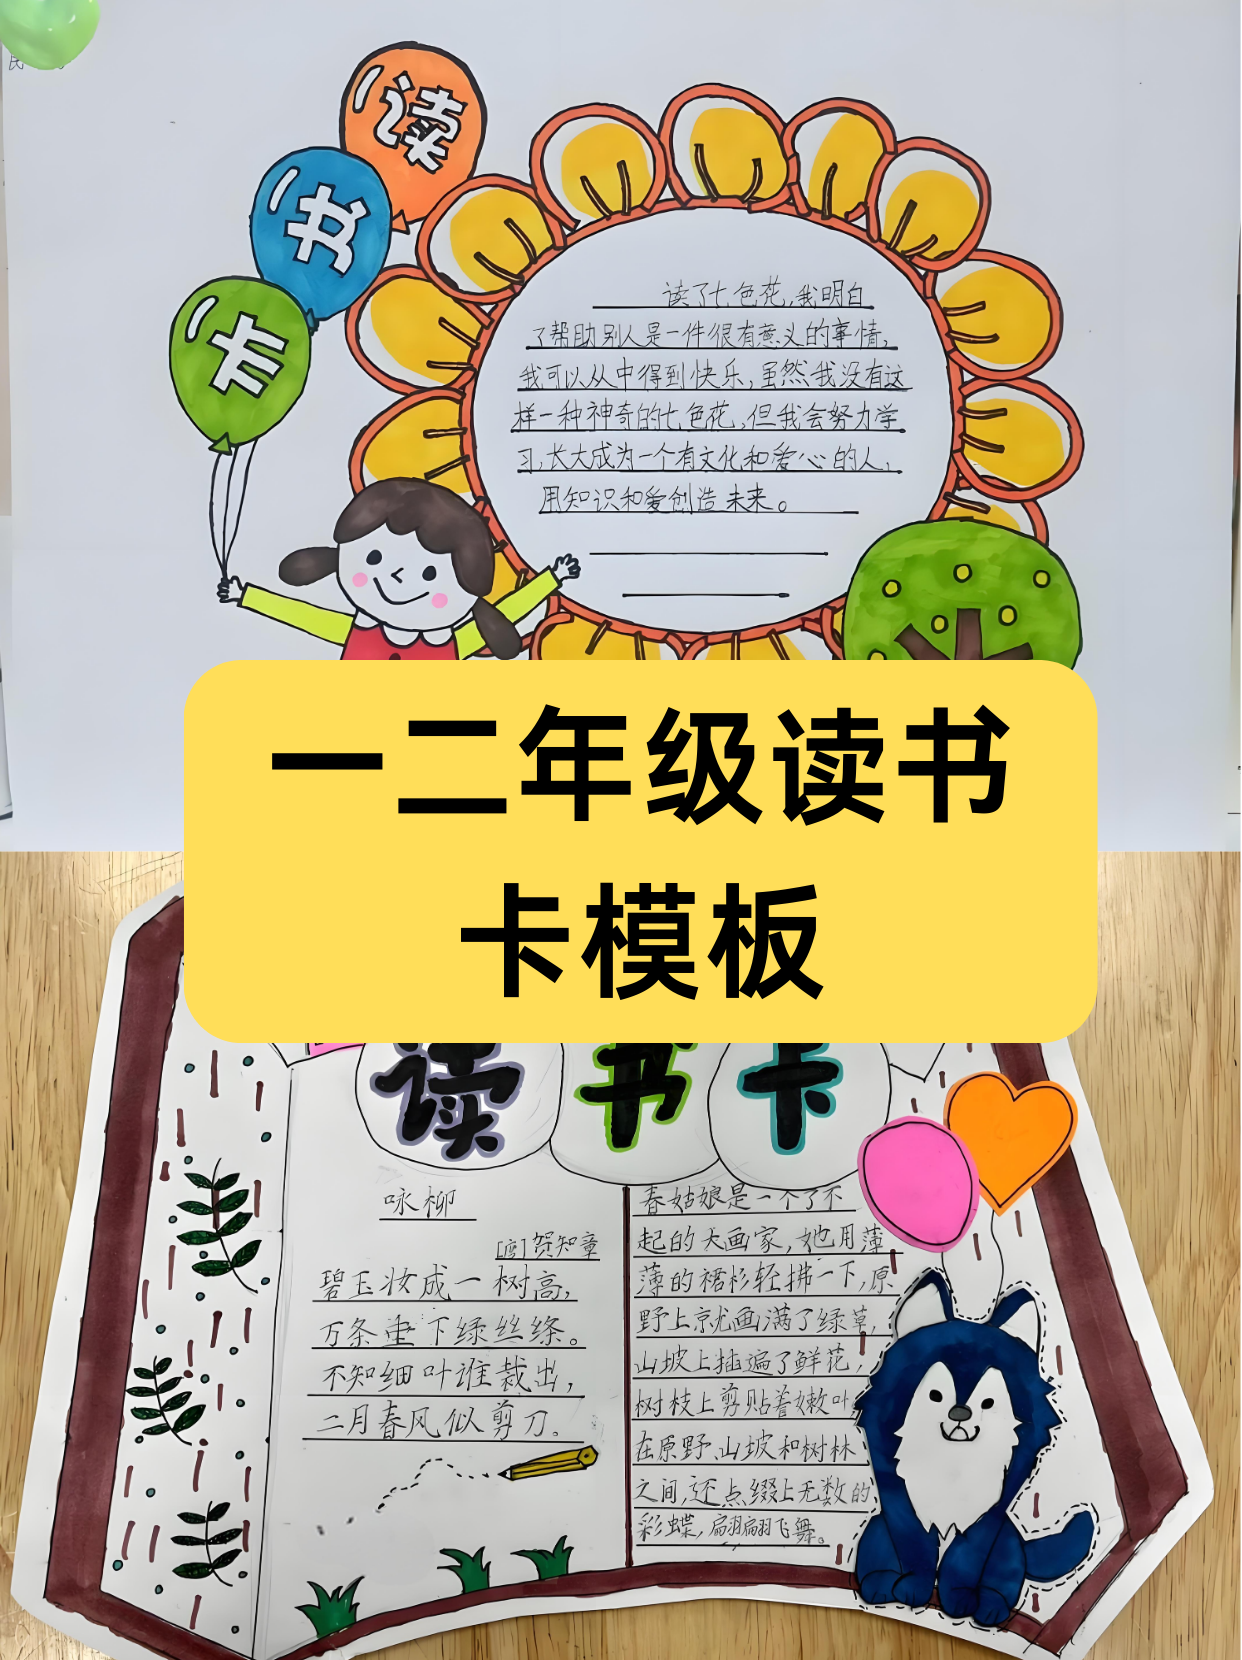 读书卡
读了七色花,我明白
了帮助别人是一件很有意义的事情,
我可以从中得到快乐,虽然我没有这
样一种神奇的七色花,但我会努力学
习,长大成为一个有文化和爱心的人,
用知识和爱创造未来。
一二年级读书
卡模板
读书卡
咏柳
[唐]贺知章
碧玉妆成一树高,
万条垂下绿丝绦。
不知细叶谁裁出,
二月春风似剪刀。
春姑娘是一个了不
起的大画家,她用薄
薄的裙衫轻拂一下,原
野上就画满了绿草,
山坡上插遍了鲜花,
树枝上剪贴着嫩叶
在原野、山坡和树林
之间,还点缀上无数的
彩蝶,翩翩飞舞。